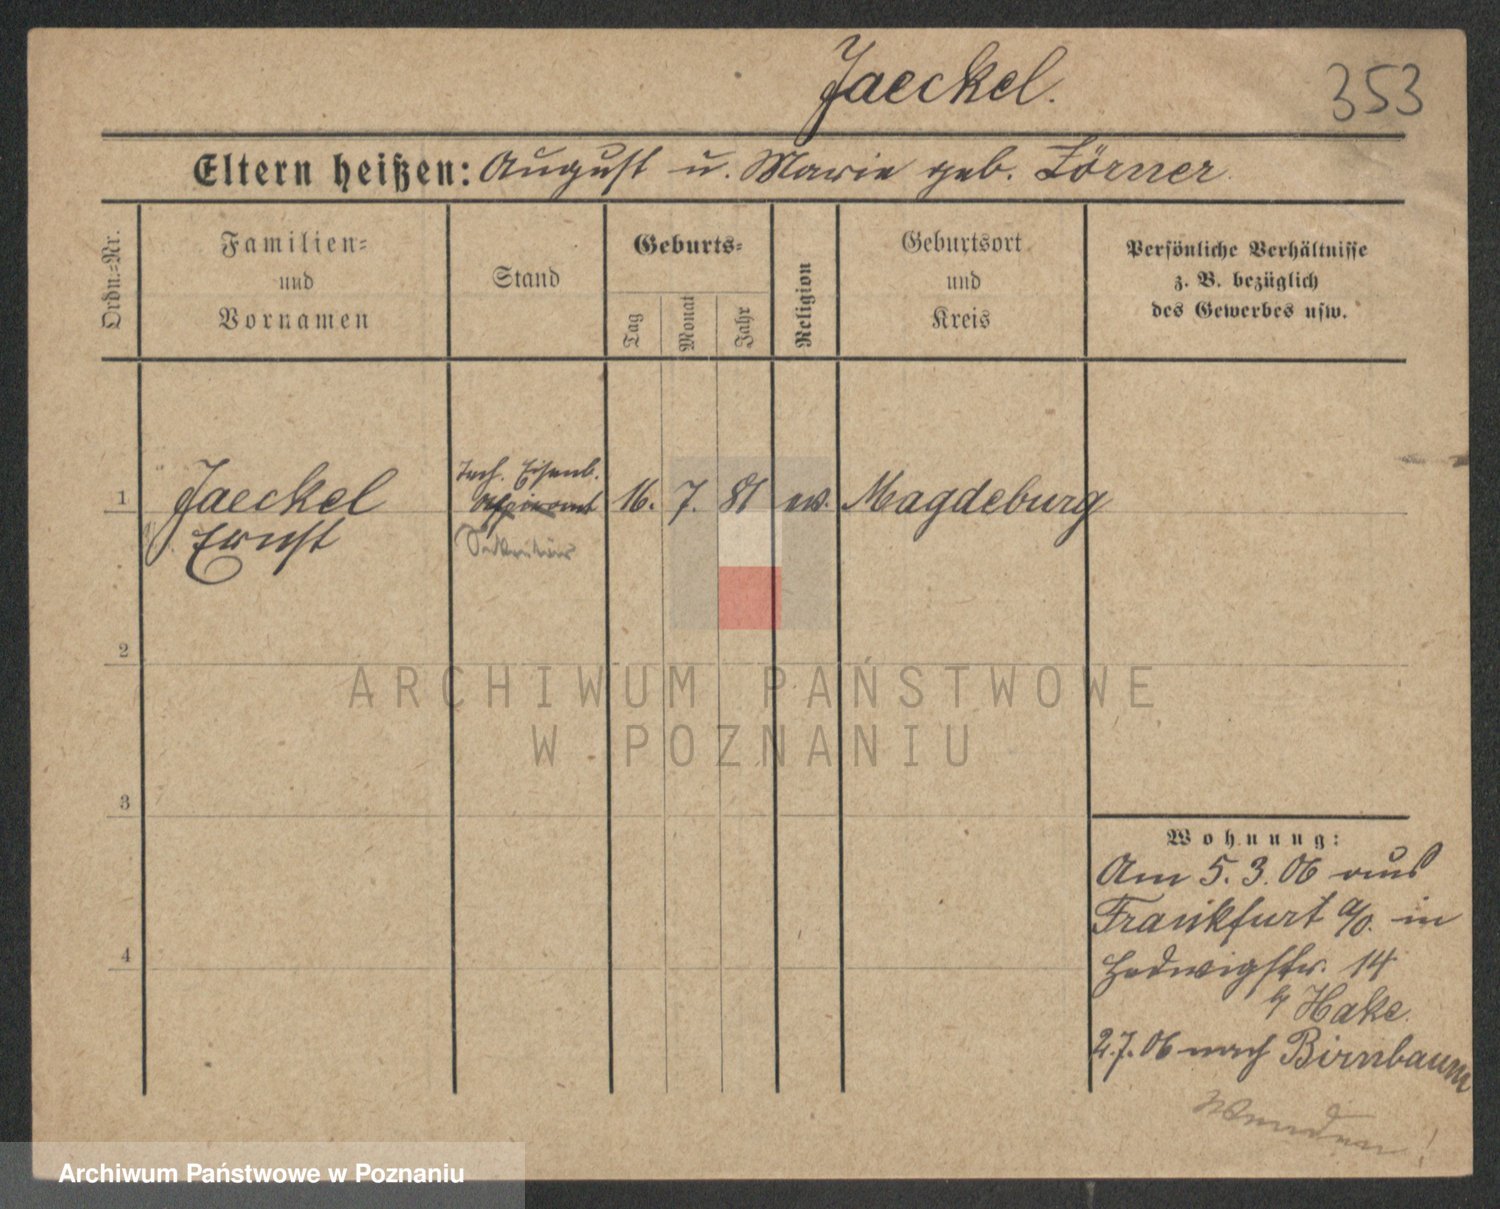 Jaeckel.
353
Eltern heißen: August u. Marie geb. Lörner.
Ordn.=Nr.
Familien=
und
Vornamen
Stand
Geburts=
Tag
Monat
Jahr
Religion
Geburtsort
und
Kreis
Persönliche Verhältnisse
z. B. bezüglich
des Gewerbes usw.
1
Jaeckel
Ernst
Tech. Eisenb.
Aspirant
Sekretär
16. 7. 81 ev. Magdeburg
2
ARCHIWUM PAŃSTWOWE
W POZNANIU
3
Wohnung:
Am 5. 3. 06 aus
Frankfurt a/O. in
Hedwigstr. 14
b/ Hake.
4
2.7.06 nach Birnbaum
Wenden!
Archiwum Państwowe w Poznaniu